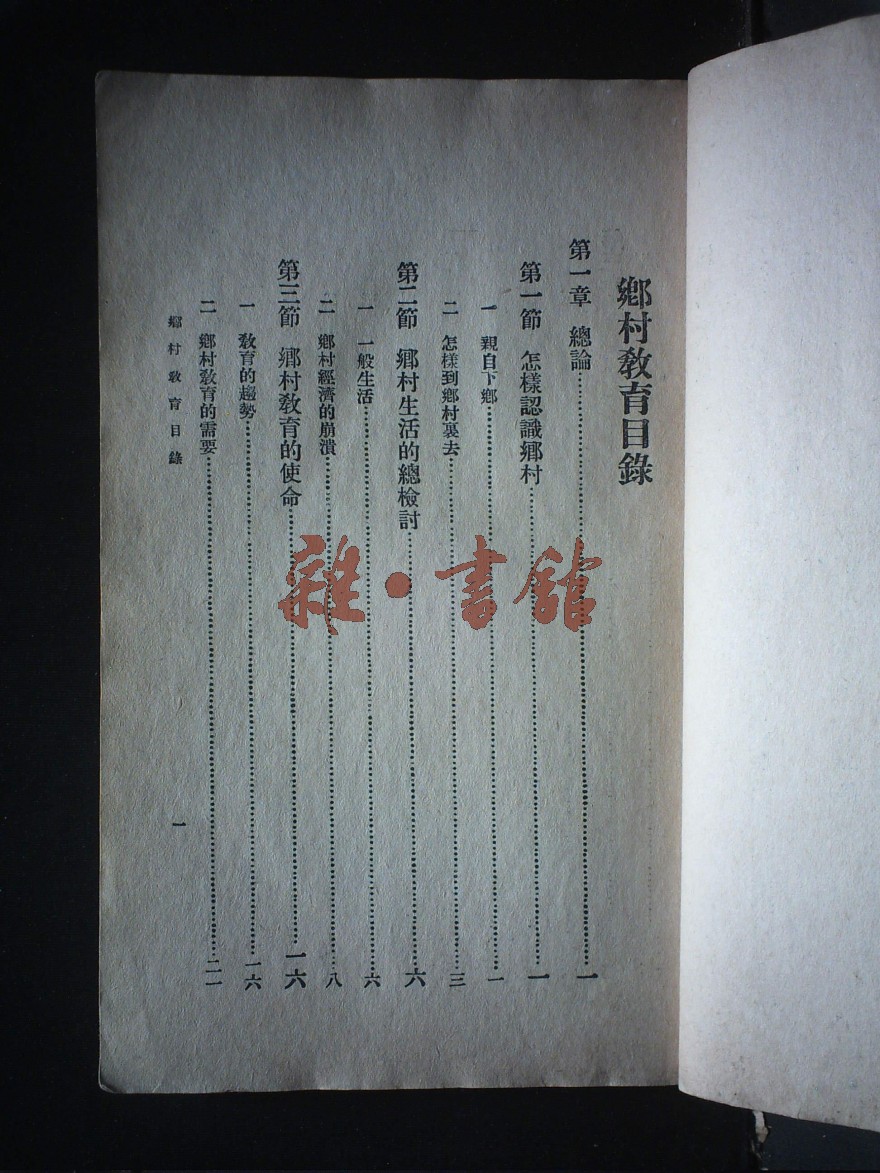 鄉村教育目錄
第一章 總論……一
第一節 怎樣認識鄉村……一
一 親自下鄉……一
二 怎樣到鄉村裏去……三
第二節 鄉村生活的總檢討……六
一 一般生活……六
二 鄉村經濟的崩潰……八
第三節 鄉村教育的使命……一六
一 教育的趨勢……一六
二 鄉村教育的需要……二一
鄉村教育目錄
一
雜·書館